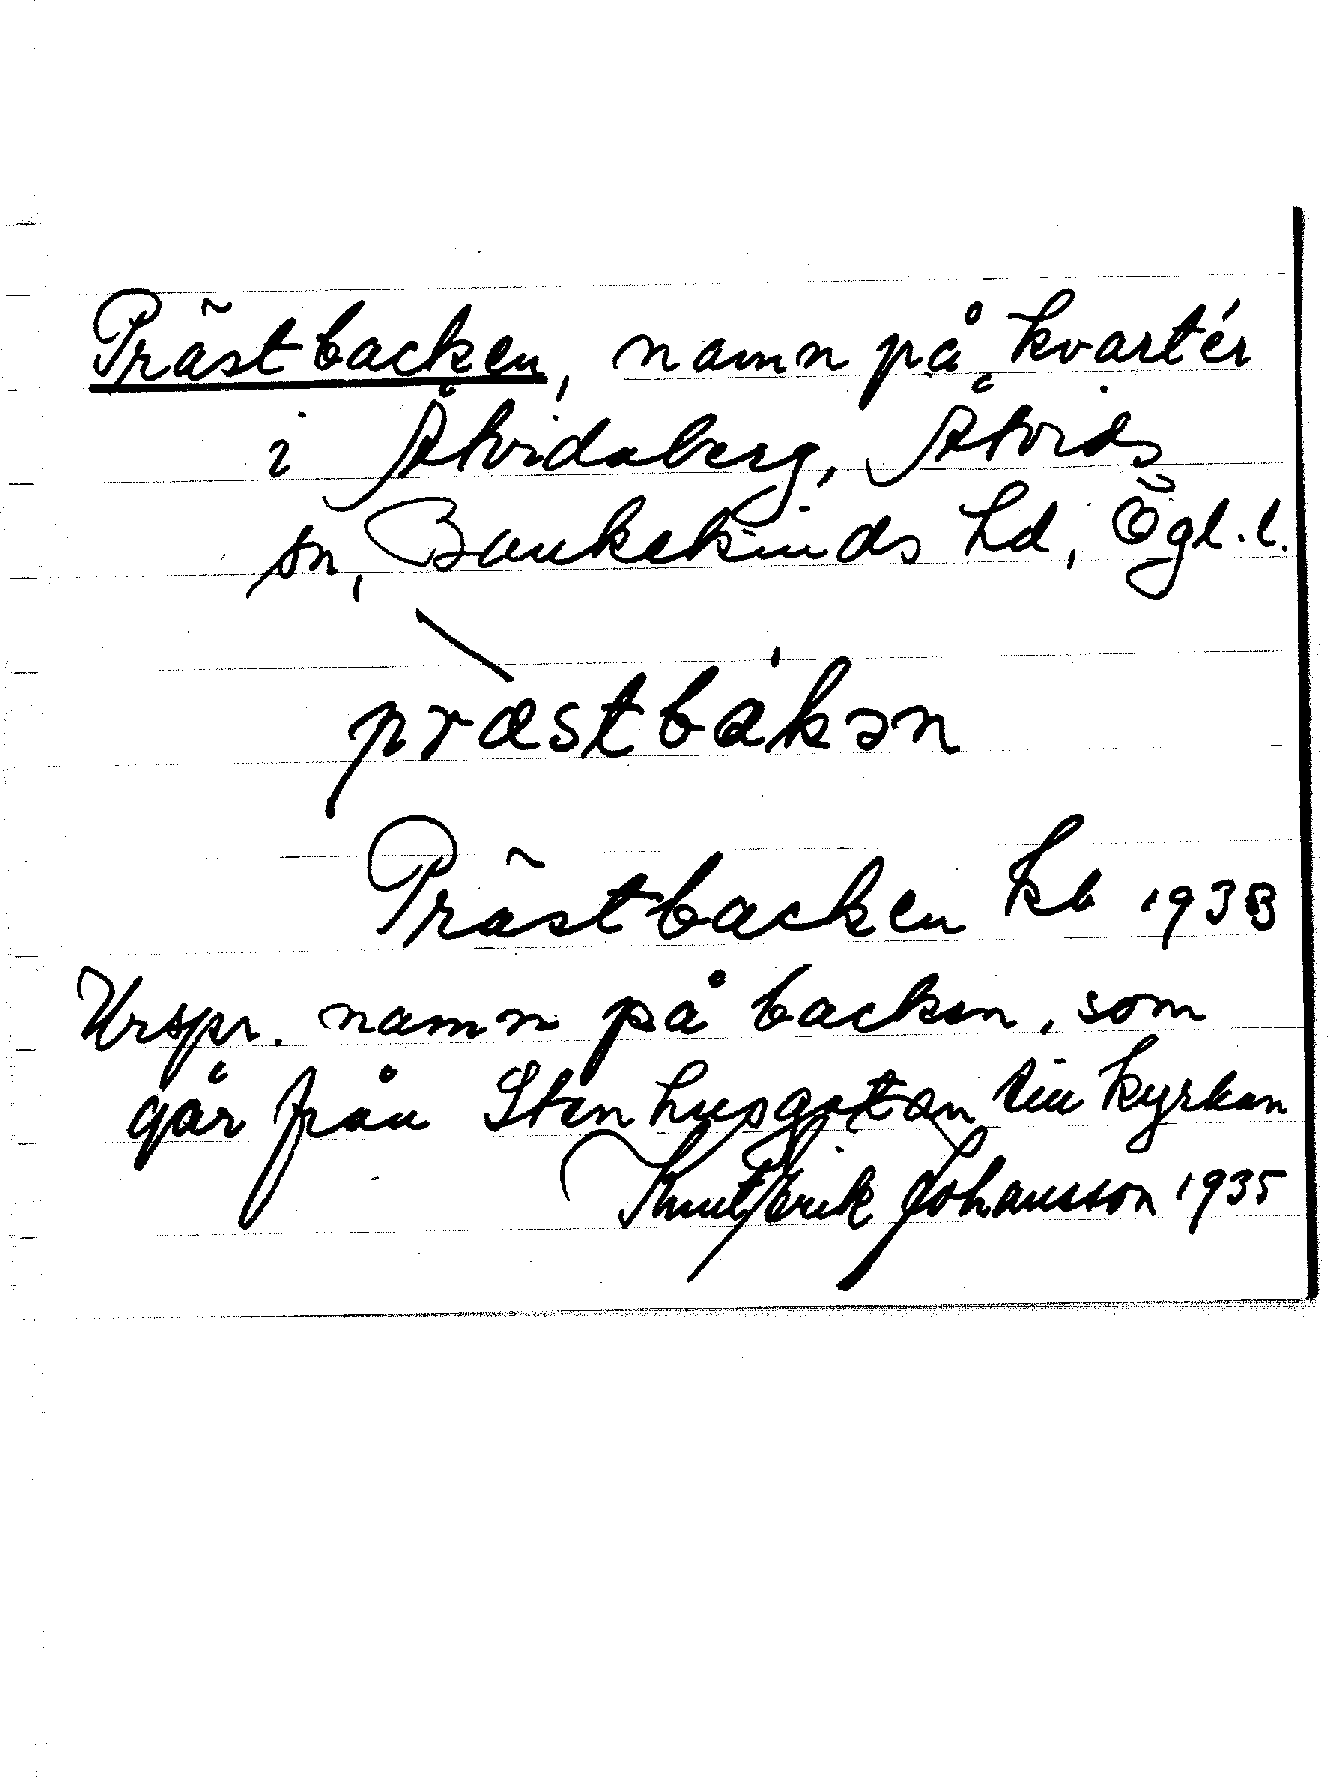 Prästbacken, namn på kvartér
i Åtvidaberg, Åtvids
sn, Bankekinds hd, Ögl. l.
præstbàkən
Prästbacken kb 1933
Urspr. namn på backen, som
går från Stenhusgatan till kyrkan
Knut Erik Johansson 1935